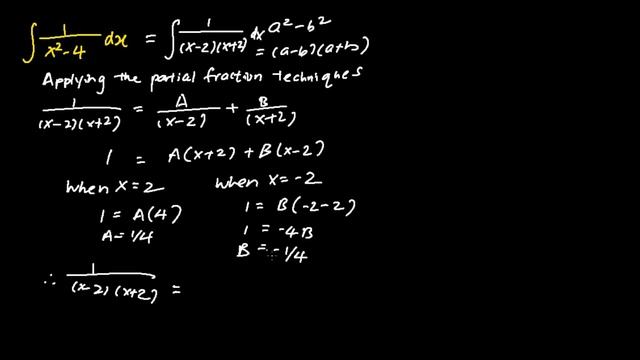 ∫ 1/(x²-4) dx = ∫ 1/((x-2)(x+2)) dx a²-b²
= (a-b)(a+b)
Applying the partial fraction techniques
1/((x-2)(x+2)) = A/(x-2) + B/(x+2)
1 = A(x+2) + B(x-2)
when x=2 when x=-2
1 = A(4) 1 = B(-2-2)
A = 1/4 1 = -4B
B = -1/4
∴ 1/((x-2)(x+2)) =